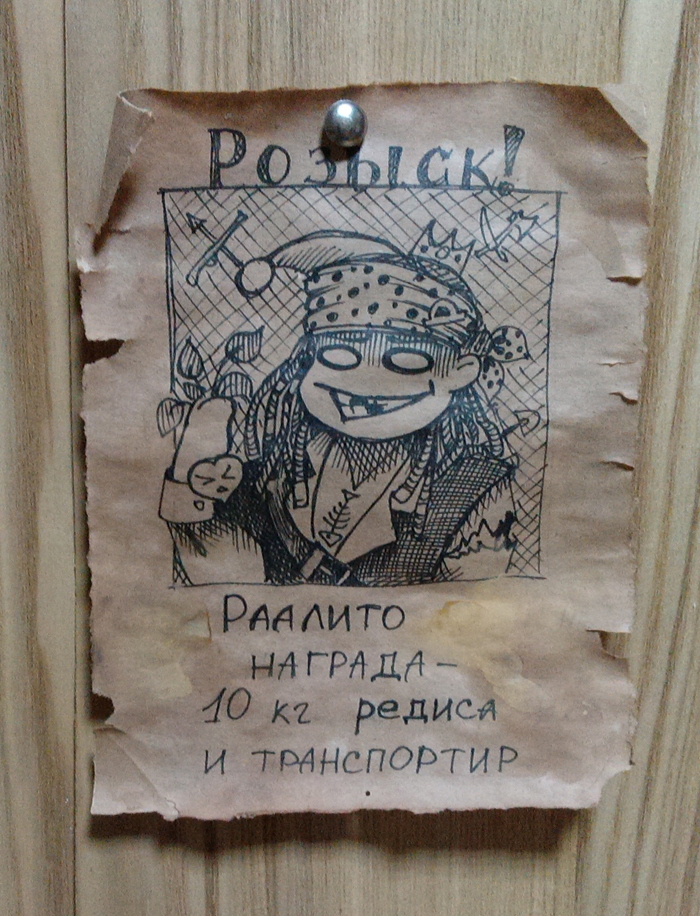 Розыск!
Раалито
НАГРАДА-
10 кг редиса
и ТРАНСПОРТИР